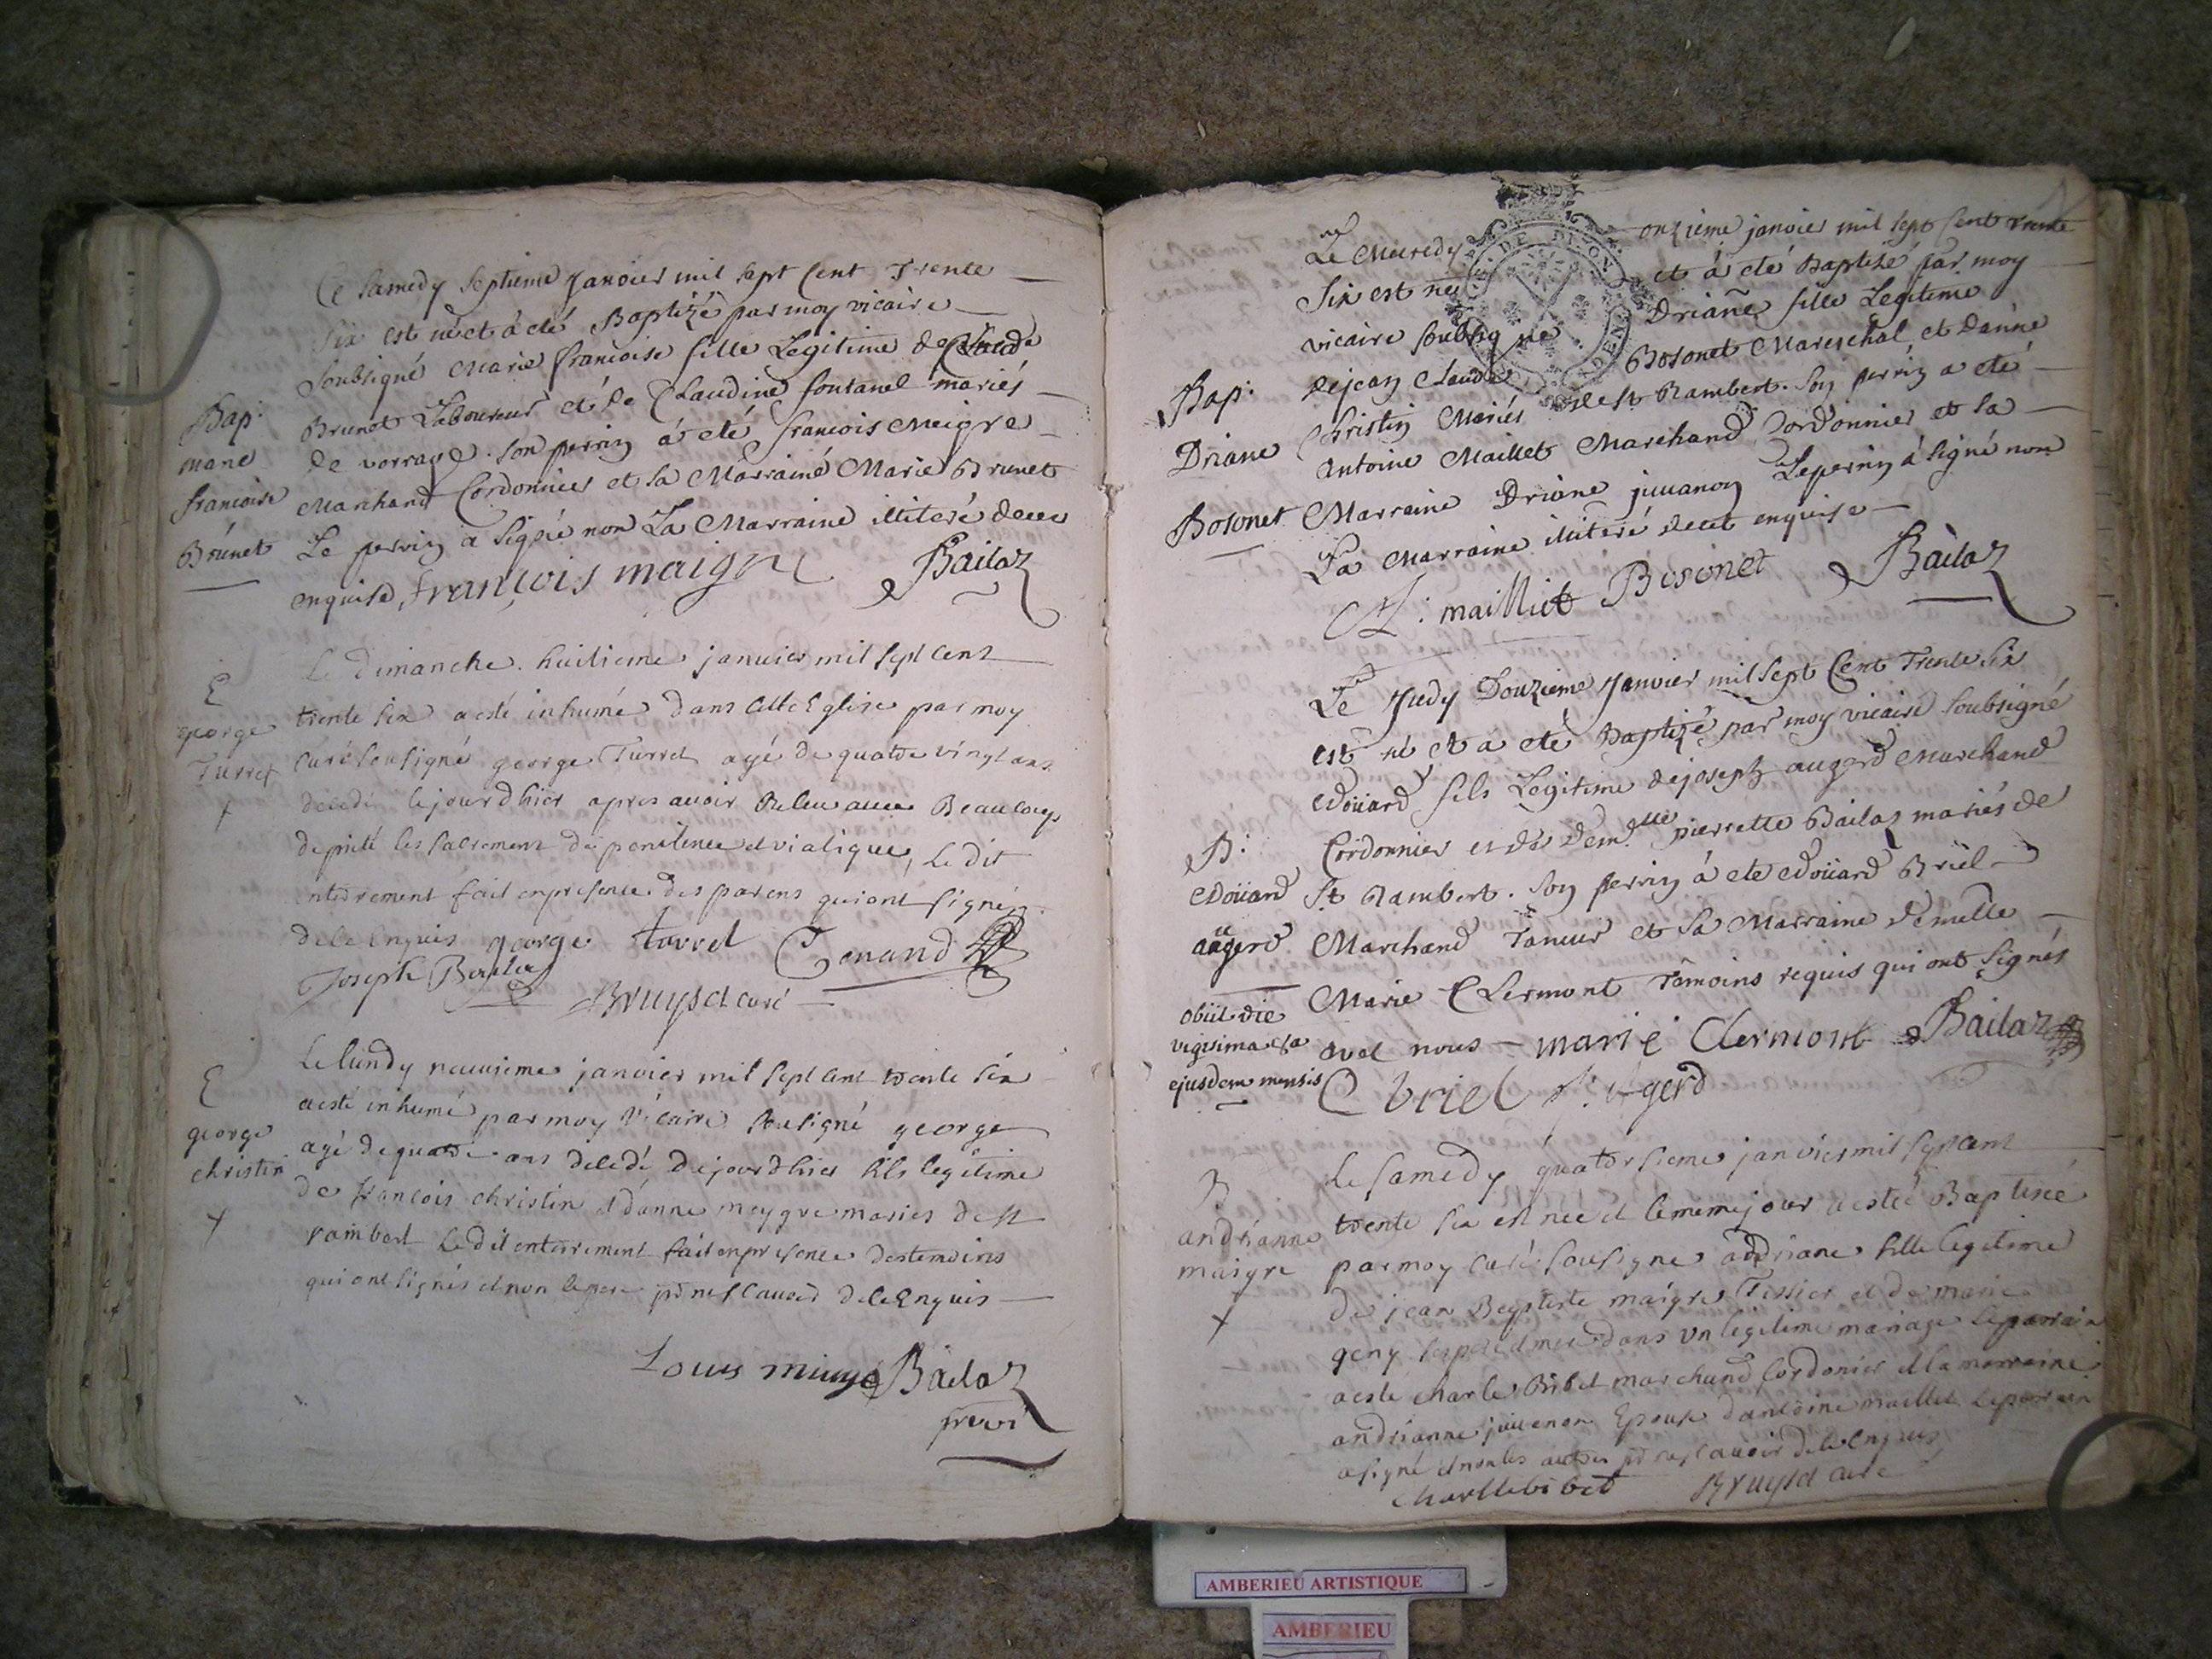 Ce Samedy Septieme Janvier mil Sept Cent Trente
Six est né et à eté Baptizé par moy vicaire
Soubsigné Marie francoise fille Legitime de Claude
Bap: Brunet Laboureur et de Claudine fontanel mariés
marie de vorrage. Son perrin à eté francois Meigre
francoise Marchand Cordonnier et la Marraine Marie Brunet
Brunet Le perrin a Signé non La Marraine illiteré de ce
enquise, françois maigre Bailaz
Le dimanche huitieme janvier mil sept cent
E trente six a esté inhumé dans cette Eglise par moy
george curé sousigné george Turret agé de quatre vingt ans
Turret décedé le jourdhier apres avoir Beaucoup
+ de pieté les sacrement de penitence et viatique, Le dit
enterrement fait en presence des parens qui ont signé
de ce Enquis george turrel Genand
Joseph Bruyset curé
Le lundy neuvieme janvier mil sept cent trente six
E a esté inhumé par moy Vicaire sousigné george
george agé de quatre ans décedé dejourdhier fils legitime
christin de francois christin et danne meygre maries de st
+ rambert Le dit enterrement fait en presence des temoins
qui ont signés et non le pere pr ne scavoir de ce Enquis
Louis Bailaz
prevï
Le Mecredy onzieme janvier mil sept cent trente
Six est né et à eté Baptizé par moy
vicaire soubsigné Driane fille Legitime
Bap: de jean Claude Bosonet Mareschal, et danne
Driane Christin Mariés de St Rambert. Son perrin a eté
Bosonet antoine Maillet Marchand Cordonnier et sa
Marraine Driane juuanon Le perrin à signé non
La Marraine illiteré de cet enquise
A: maillict Bosonet Bailaz
Le Judy Douzieme Janvier mil Sept Cent Trente Six
est né et a eté Baptizé par moy vicaire soubsigné
edoüard fils Legitime de joseph augerd Marchand
B: Cordonnier et de Demlle pierrette Bailaz mariés de
edoüard St Rambert. Son perrin à eté edoüard Briel
augerd Marchand Taneur et sa Marraine Demelle
Marie Clermont Témoins requis qui ont signés
obiit die avec nous marie Clermont Bailaz
vigesima 6a
ejusdem mensis E briel
Le samedy quatorsieme janvier mil sept cent
B trente six est née et le meme jour a estée Baptisée
andrianne par moy curé sousigne addriane fille legitime
maigre de jean Baptiste maigre Tissier et de marie
+ geny ses pere et mere dans un legitime mariage Le parrain
a esté charle Bibet marchand Cordonier et la marraine
andrianne juuenon Epouse d'antoine maillet Le parrain
a signé et non les autres pr ne scavoir de ce Enquis
charlle bibet Bruyset curé
AMBERIEU ARTISTIQUE
AMBERIEU